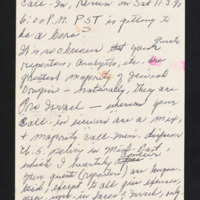 Call-In, Rerun on Sat 11-3-90
6:00 P.M. PST is getting to
be a bore.
It is obvious that your guest
reporters, Analysts, etc. are
greatest majority of Jewish
Origin - naturally they are
Pro Israel - whereas your
Call-In viewers are a mix
+ majority call min.
U.S. policy in Mid-East,
which I heartily
Your guest (reporters) are
paid, except to all give opinions
in favor of Israel, only